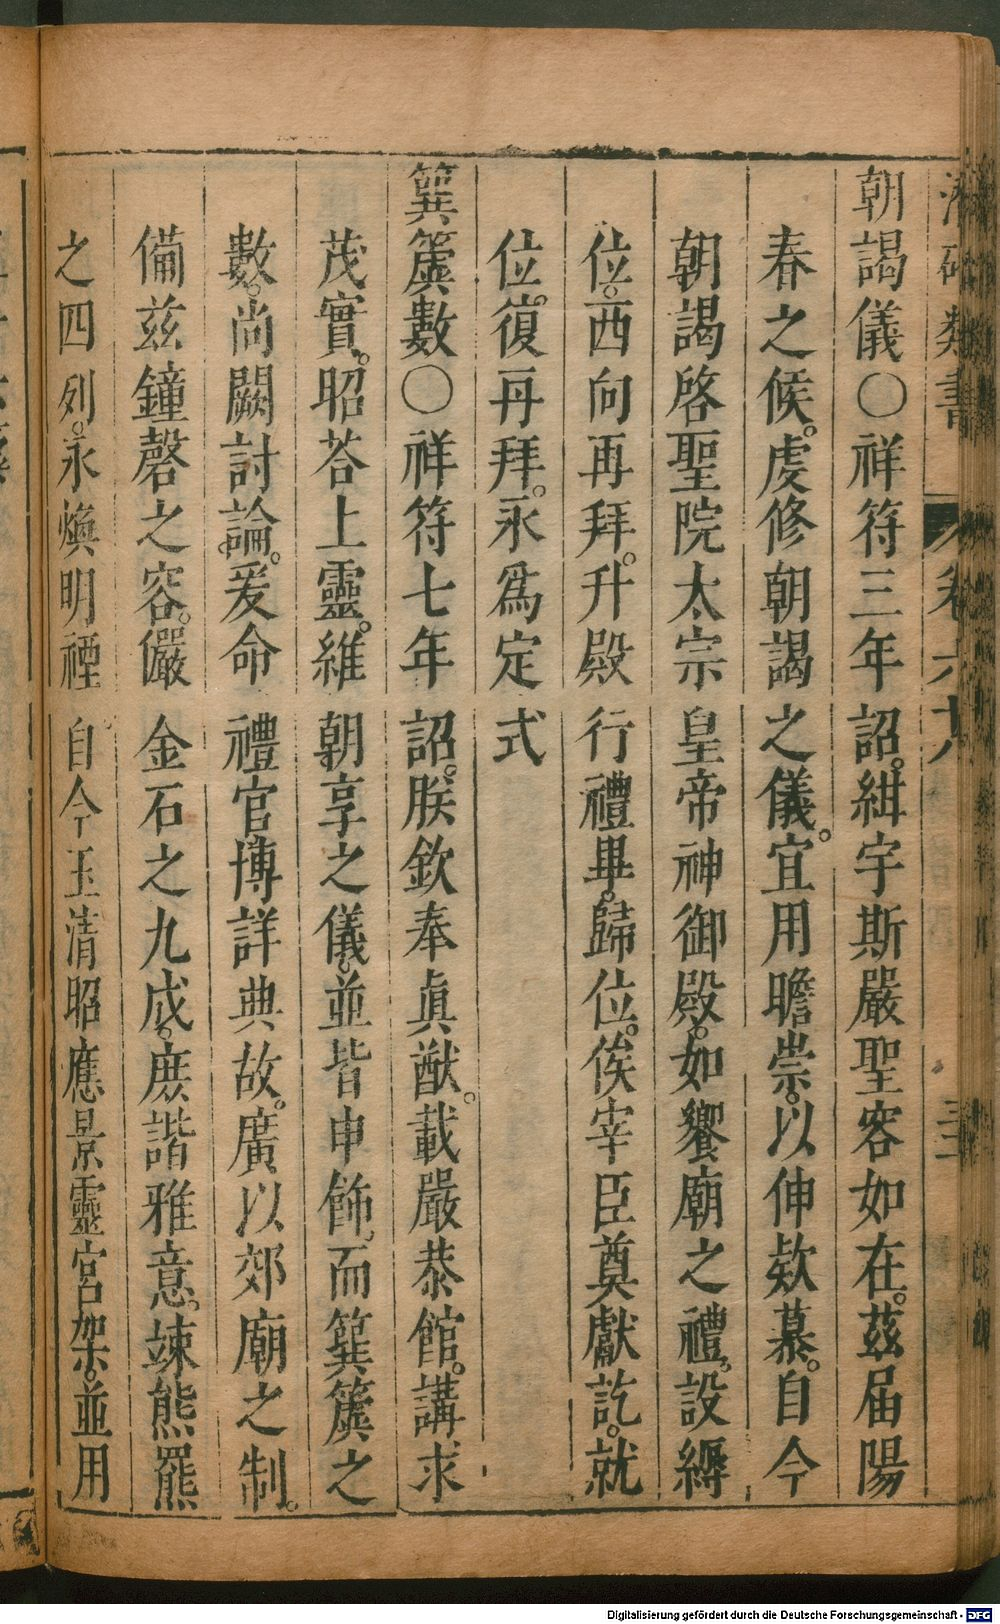 潛確類書 卷六十八
朝謁儀○祥符三年詔。紺宇斯嚴聖容如在。茲届陽
春之候。虔修朝謁之儀。宜用瞻崇。以伸欵慕。自今
朝謁啓聖院太宗皇帝神御殿。如饗廟之禮。設縟
位。西向再拜。升殿行禮畢。歸位。俟宰臣奠獻訖。就
位。復再拜。永爲定式
簨簴數○祥符七年詔。朕欽奉眞猷。載嚴恭館。講求
茂實。昭荅上靈。維朝享之儀。並皆申飾。而簨簴之
數。尚闕討論。爰命禮官博詳典故。廣以郊廟之制。
備茲鐘磬之容。儼金石之九成。庶諧雅意。竦熊羆
之四列。永煥明禋。自今玉清昭應景靈宮架。並用
Digitalisierung gefördert durch die Deutsche Forschungsgemeinschaft - DFG